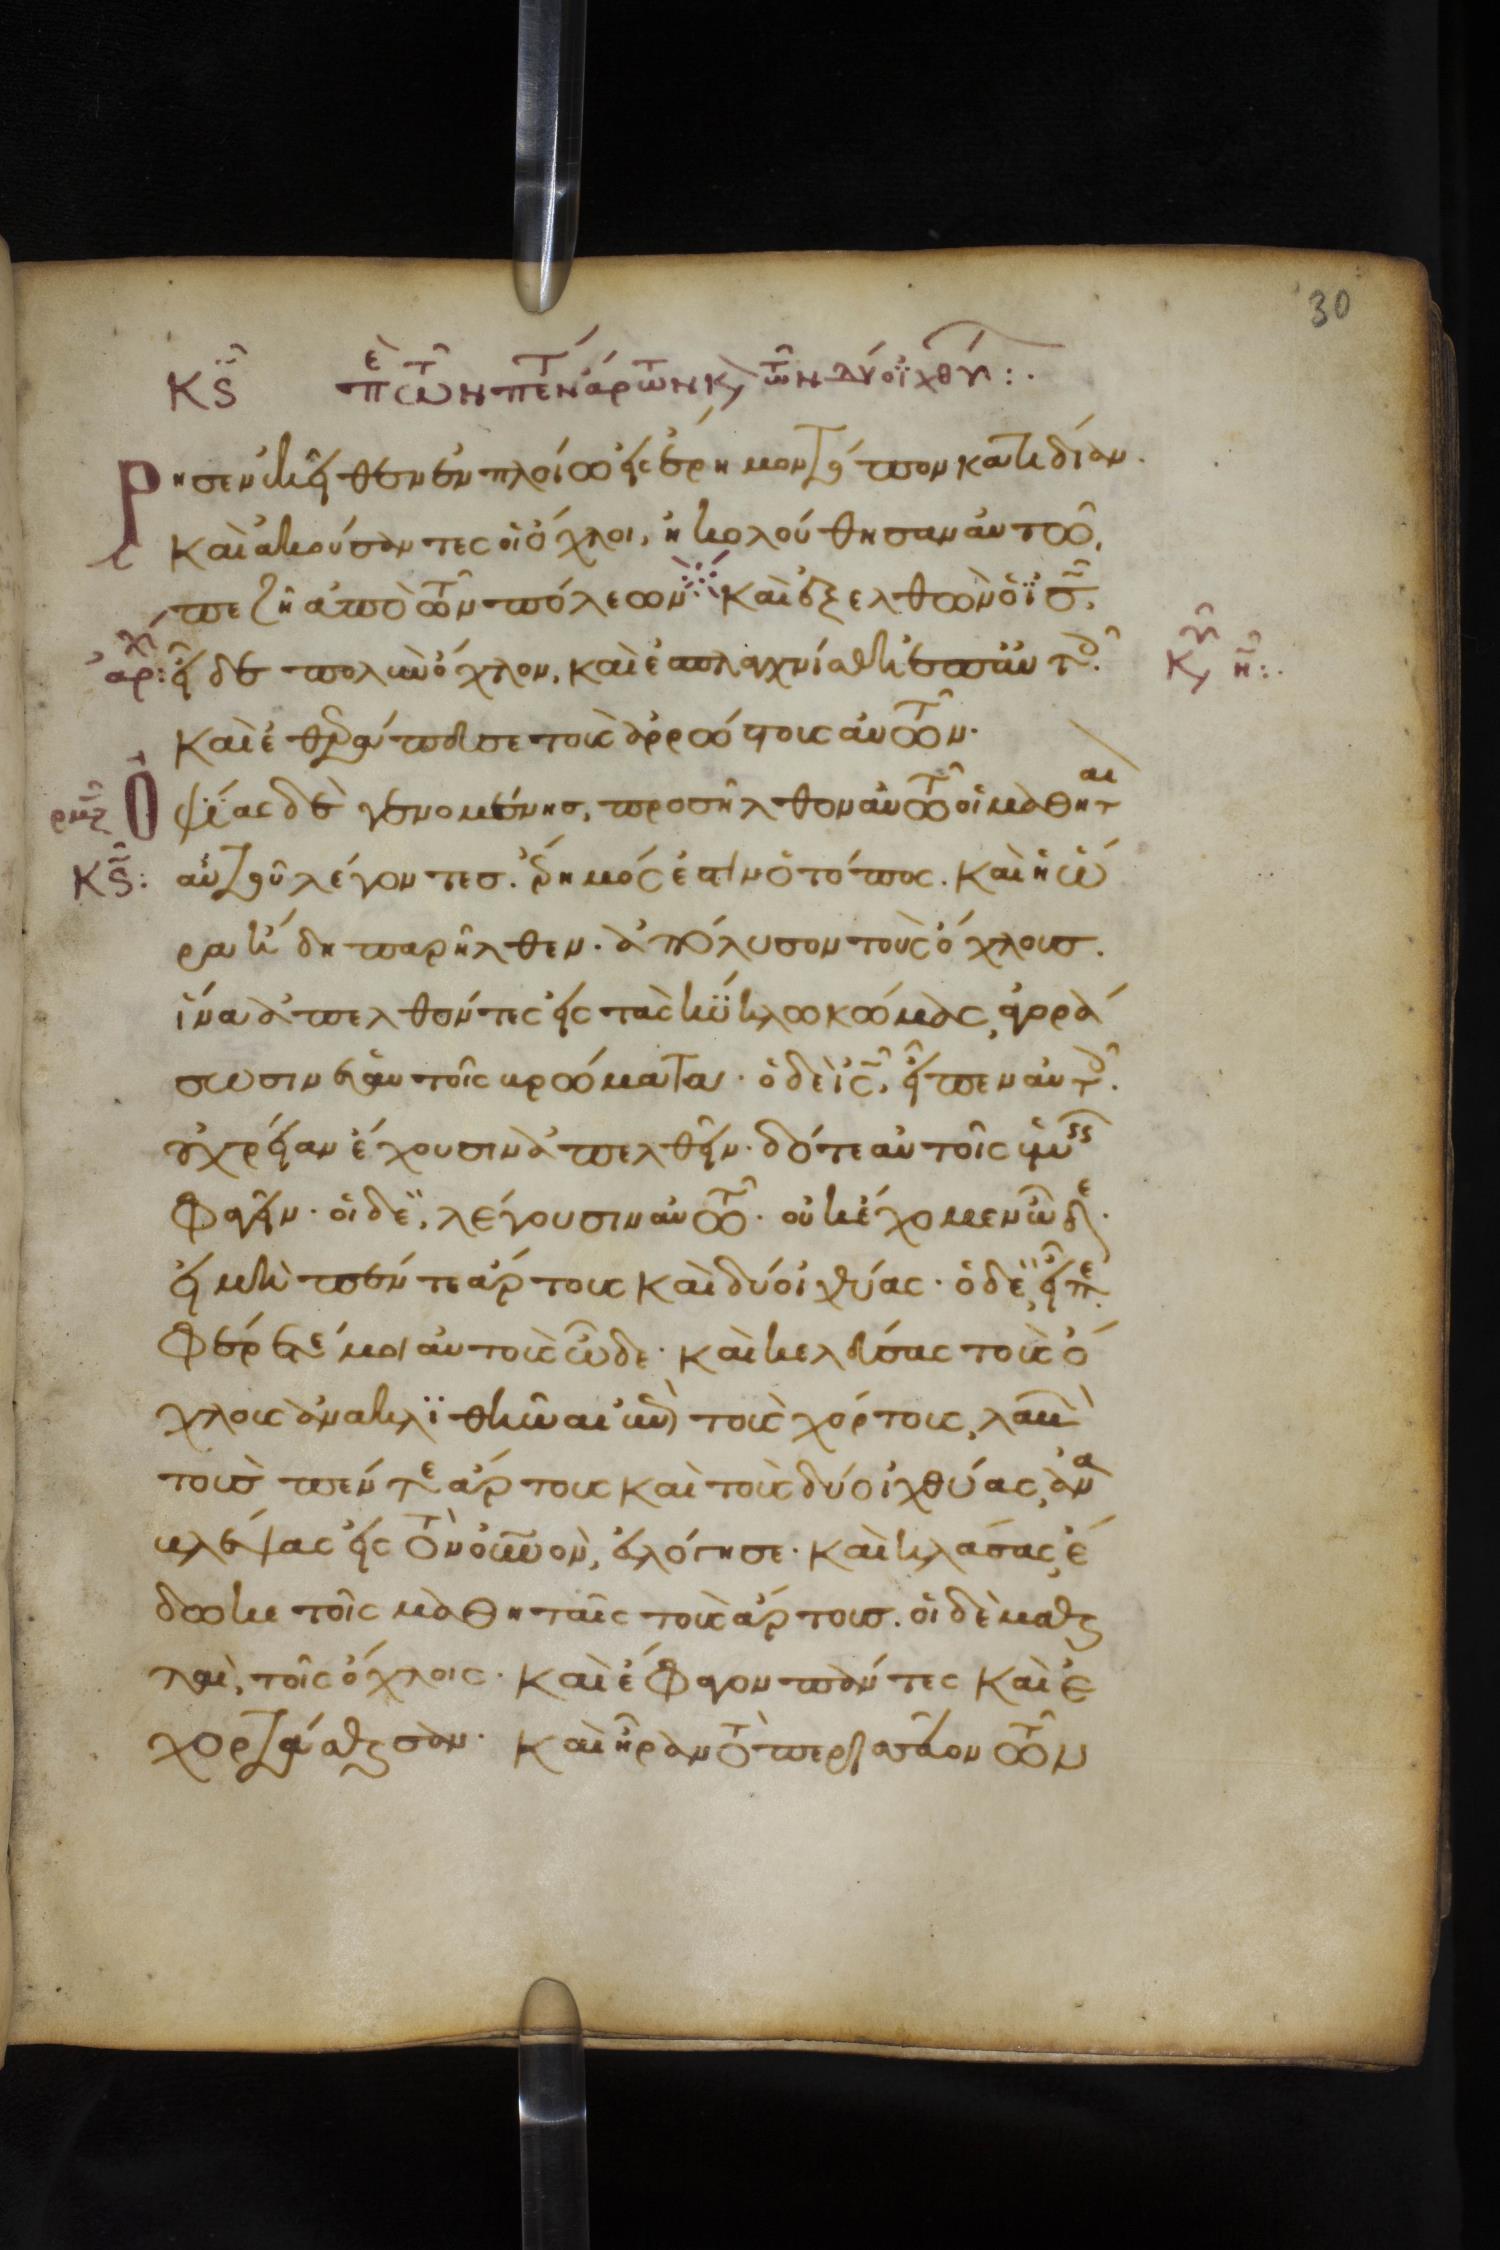 30
Κϛ πε τῶν πέντ ἄρτων κ τῶν δύο ἰχθύ :.
ρησεν ἐκεῖθεν ἐν πλοίω εἰς ἔρημον τόπον κατιδίαν.
Καὶ ἀκούσαντες οἱ ὄχλοι, ἠκολούθησαν αὐτῶ,
πεζῆ ἀπὸ τῶν πόλεων Καὶ ἐξελθὼν ὁ ϊς,
ἀρχ: εἶδε πολὺν ὄχλον, καὶ ἐσπλαγχνίσθη ἐπ' αὐτ. Κυ η:.
Καὶ ἐθεράπευσε τοὺς ἀρρώστους αὐτῶν.
ρμζ Ὀψίας δὲ γενομένης, προσῆλθον αὐτῶ οἱ μαθηταὶ
Κϛ: αὐτοῦ λέγοντες. ἔρημός ἐστιν ὁ τόπος. Καὶ ἡ ὥ
ρα ἤδη παρῆλθεν. ἀπόλυσον τοὺς ὄχλους.
ἵνα ἀπελθόντες εἰς τὰς κύκλω κώμας, ἀγορά
σωσιν ἑαυτοῖς βρώματα. ὁ δὲ ις, εἶπεν αὐτ.
οὐ χρείαν ἔχουσιν ἀπελθεῖν. δότε αὐτοῖς ὑμεῖς
φαγεῖν. οἱ δὲ, λέγουσιν αὐτῶ. οὐκ ἔχομεν ὧδε.
εἰ μὴ πέντε ἄρτους καὶ δύο ἰχθύας. ὁ δὲ, εἶπε.
Φέρετέ μοι αὐτοὺς ὧδε. Καὶ κελεύσας τοὺς ὄ
χλους ἀνακλϊθῆναι ἐπὶ τοὺς χόρτους, λαβὼ
τοὺς πέντε ἄρτους καὶ τοὺς δύο ἰχθύας, ἀνα
βλέψας εἰς τὸν οὐνον, εὐλόγησε. Καὶ κλάσας, ἔ
δωκε τοῖς μαθηταῖς τοὺς ἄρτους. οἱ δὲ μαθη
ταὶ, τοῖς ὄχλοις. Καὶ ἔφαγον πάντες Καὶ ἐ
χορτάσθησαν. Καὶ ἦραν τὸ περισσεῦον τῶν